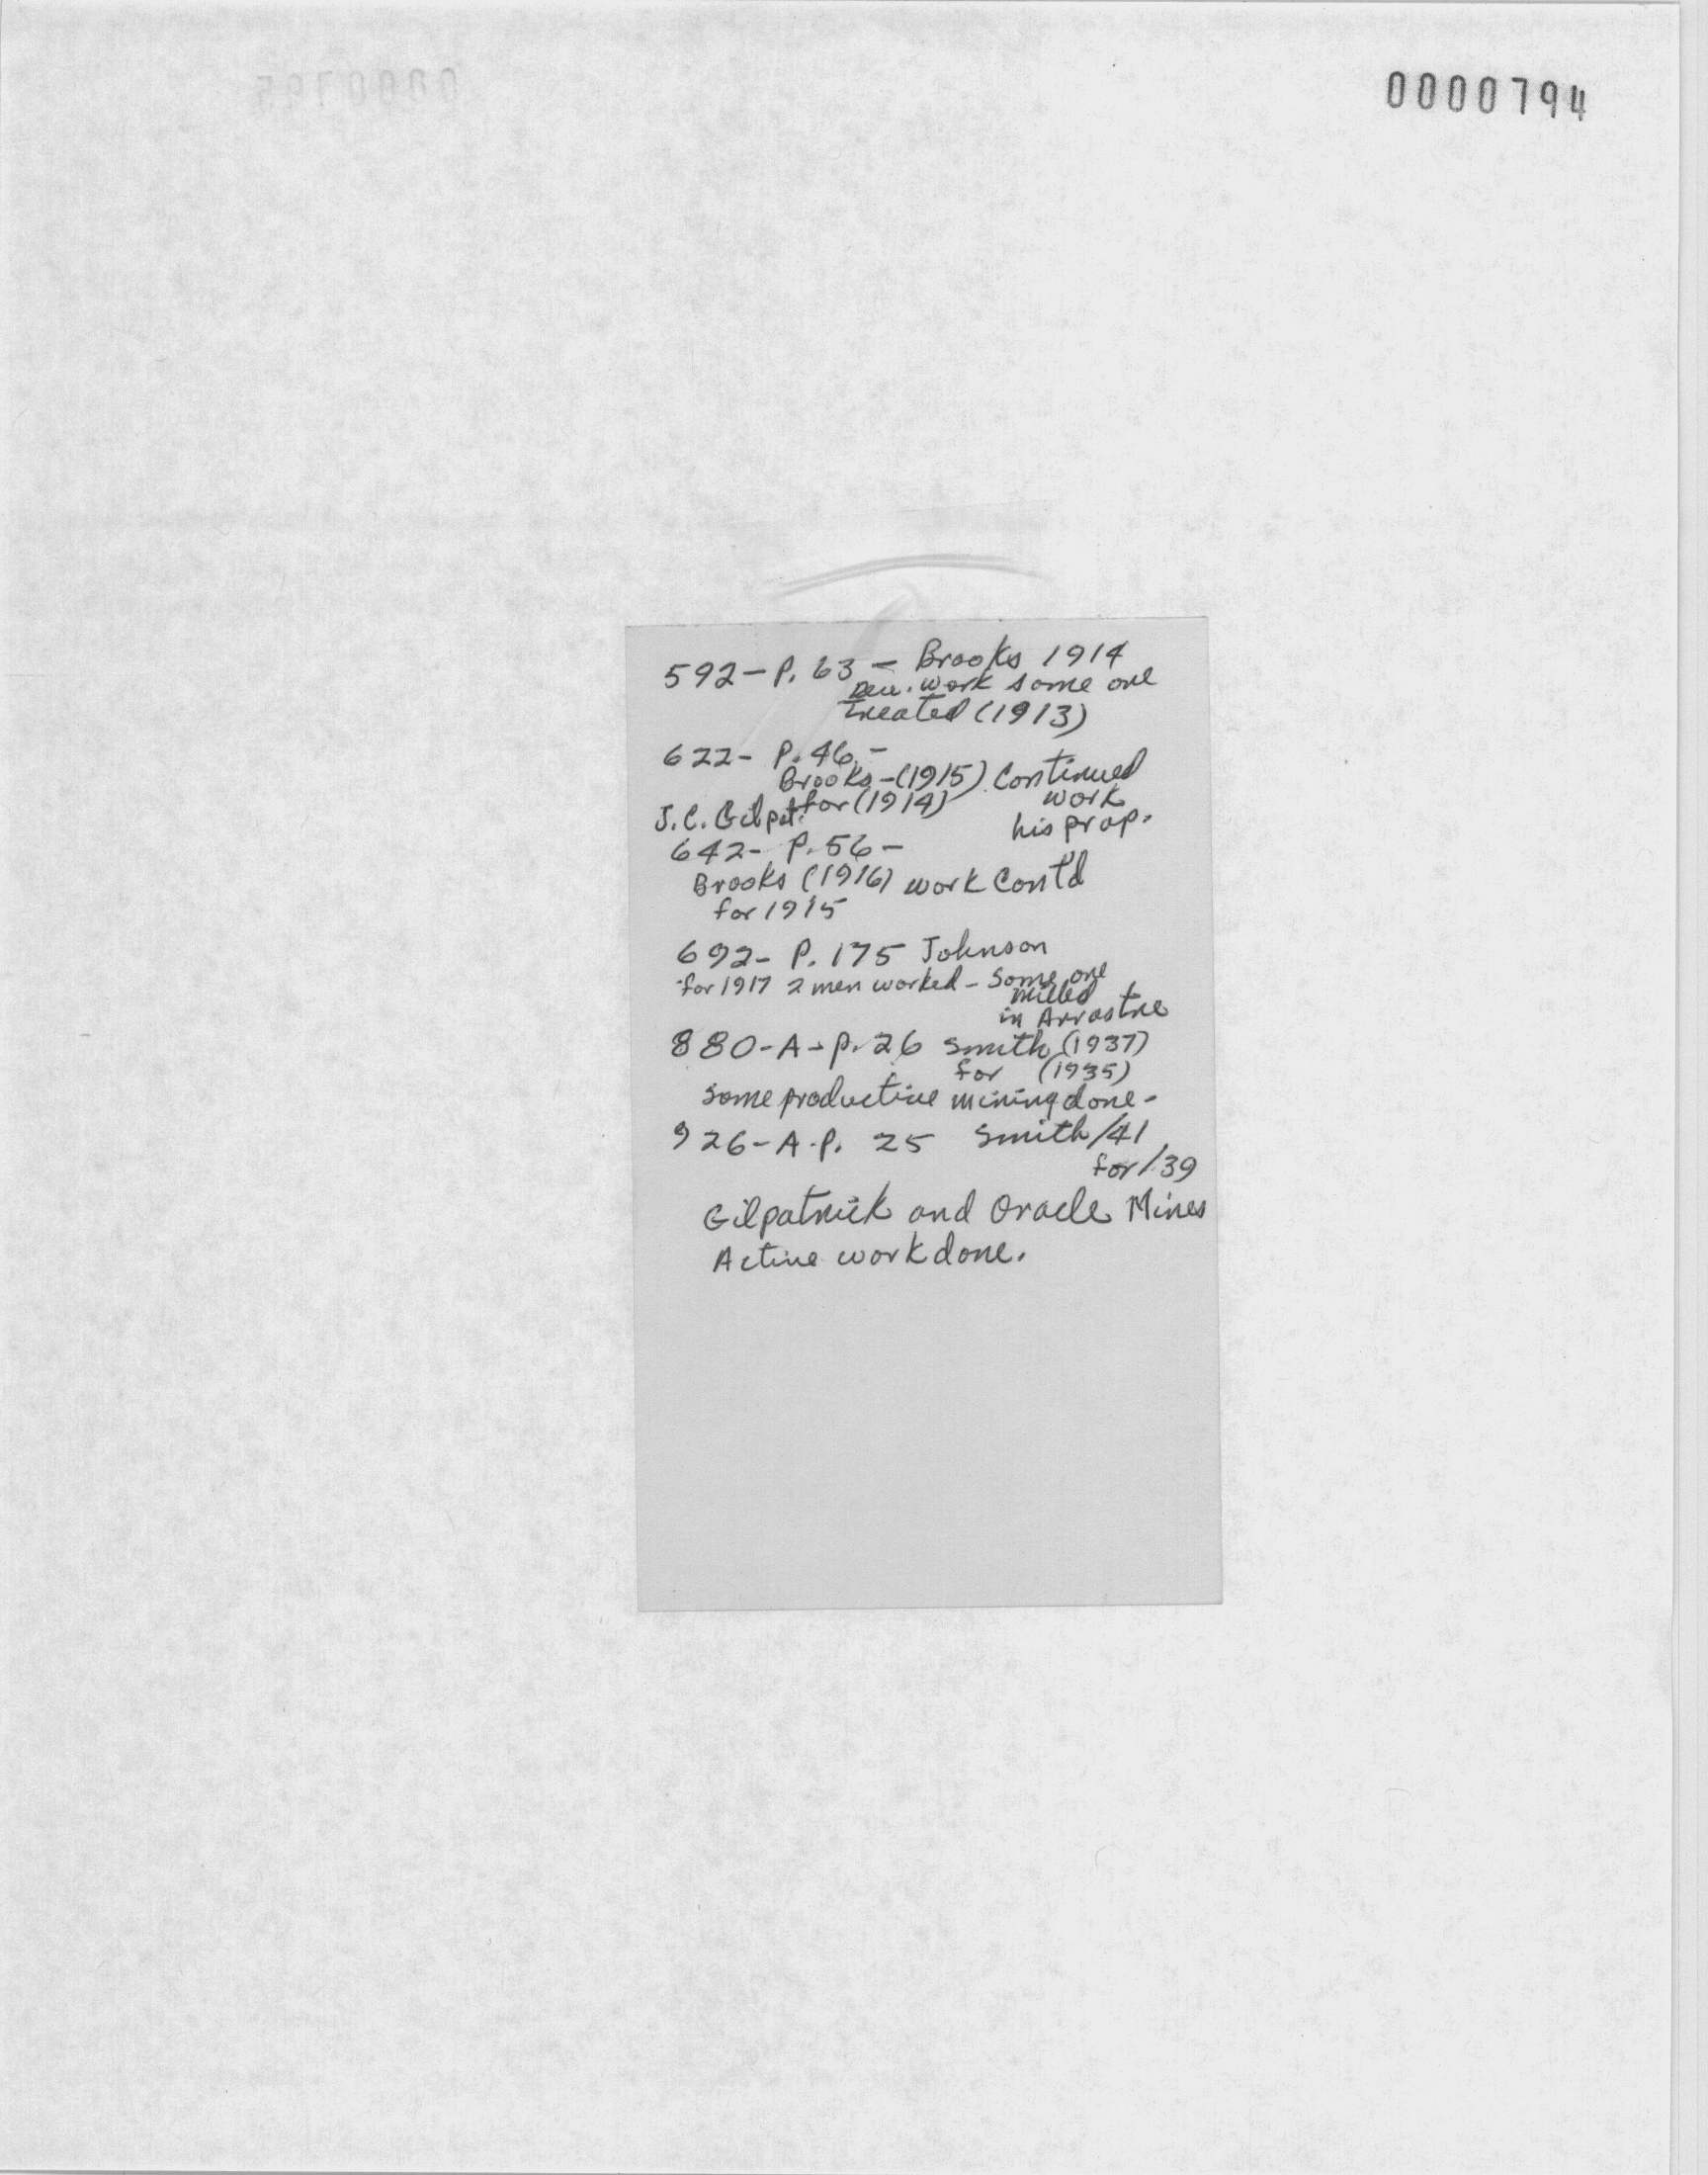 0000794
592-P. 63 - Brooks 1914
Dev. work some ore
treated (1913)
622- P. 46 -
Brooks-(1915) Continued
J.C. Gilpat. for (1914) work
his prop.
642- P. 56 -
Brooks (1916) work Cont'd
for 1915
692- P. 175 Johnson
for 1917 2 men worked - Some ore
milled
in Arrastre
880-A- p. 26 Smith (1937)
for (1935)
some productive mining done -
926-A-P. 25 Smith/41
for/39
Gilpatrick and Oracle Mines
Active work done.